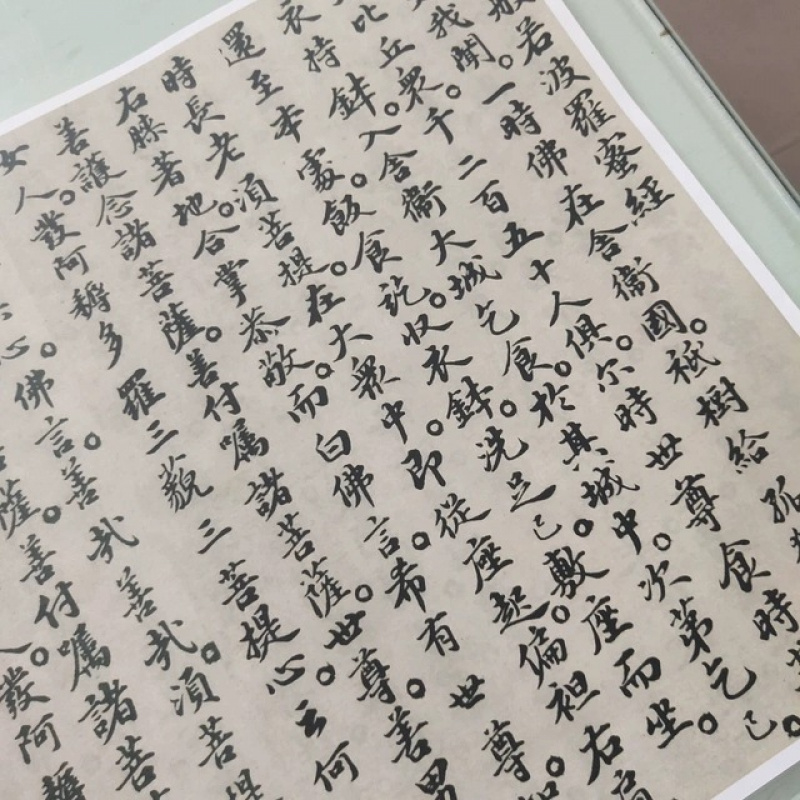 般若波羅蜜經
我聞。一時佛在舍衞國。祇樹給孤
比丘衆。千二百五十人俱。尔時世尊食時
衣持鉢。入舍衞大城乞食。於其城中。次第乞已。
還至本處。飯食訖。收衣鉢。洗足已。敷座而坐。
時長老須菩提。在大衆中。即從座起。偏袒右肩
右膝著地。合掌恭敬。而白佛言。希有世尊。如
善護念諸菩薩。善付囑諸菩薩。世尊。善男
女人。發阿耨多羅三藐三菩提心。云何
心。佛言。善哉善哉。須菩提
薩。善付囑諸菩
人。發阿耨